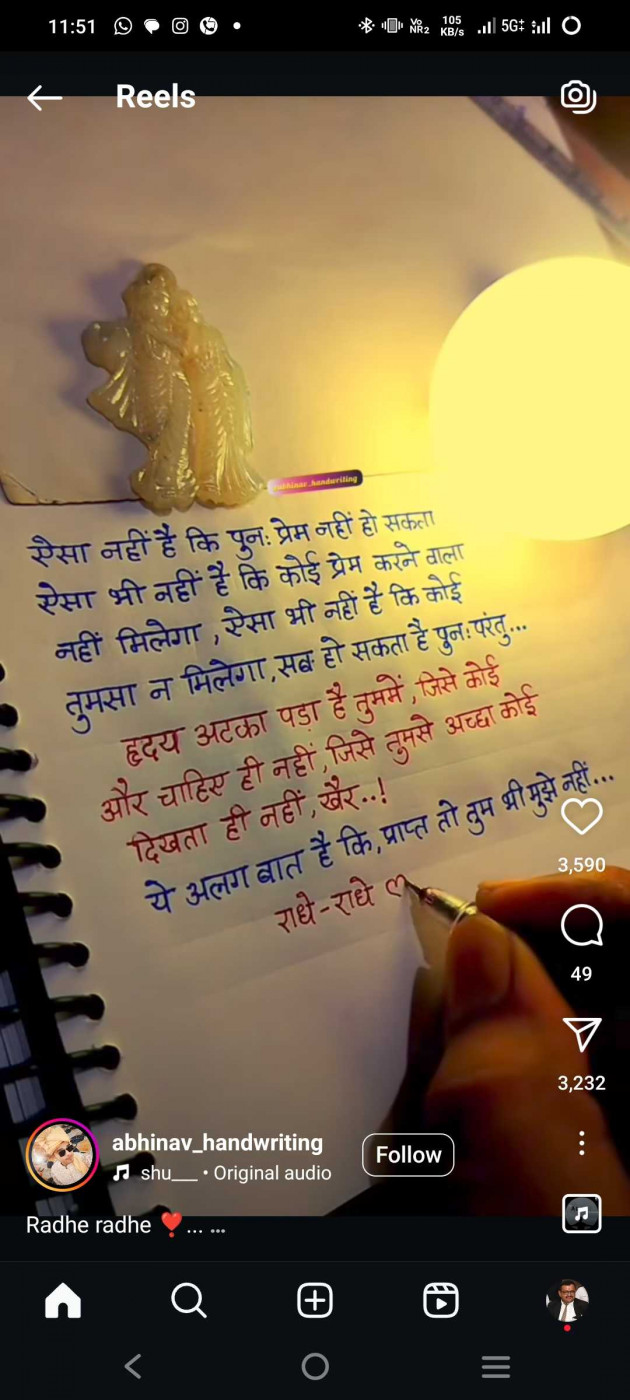 11:51
Vo
NR2
105
KB/s
5G
Reels
abhinav.handwriting
ऐसा नहीं है कि पुन: प्रेम नहीं हो सकता
ऐसा भी नहीं है कि कोई प्रेम करने वाला
नहीं मिलेगा, ऐसा भी नहीं है कि कोई
तुमसा न मिलेगा, सब हो सकता है पुन: परंतु...
हृदय अटका पड़ा है तुममें, जिसे कोई
और चाहिए ही नहीं, जिसे तुमसे अच्छा कोई
दिखता ही नहीं, खैर..!
ये अलग बात है कि, प्राप्त तो तुम भी मुझे नहीं...
राधे-राधे ♡
3,590
49
3,232
abhinav_handwriting
Follow
shu__ • Original audio
Radhe radhe ❣️... ...